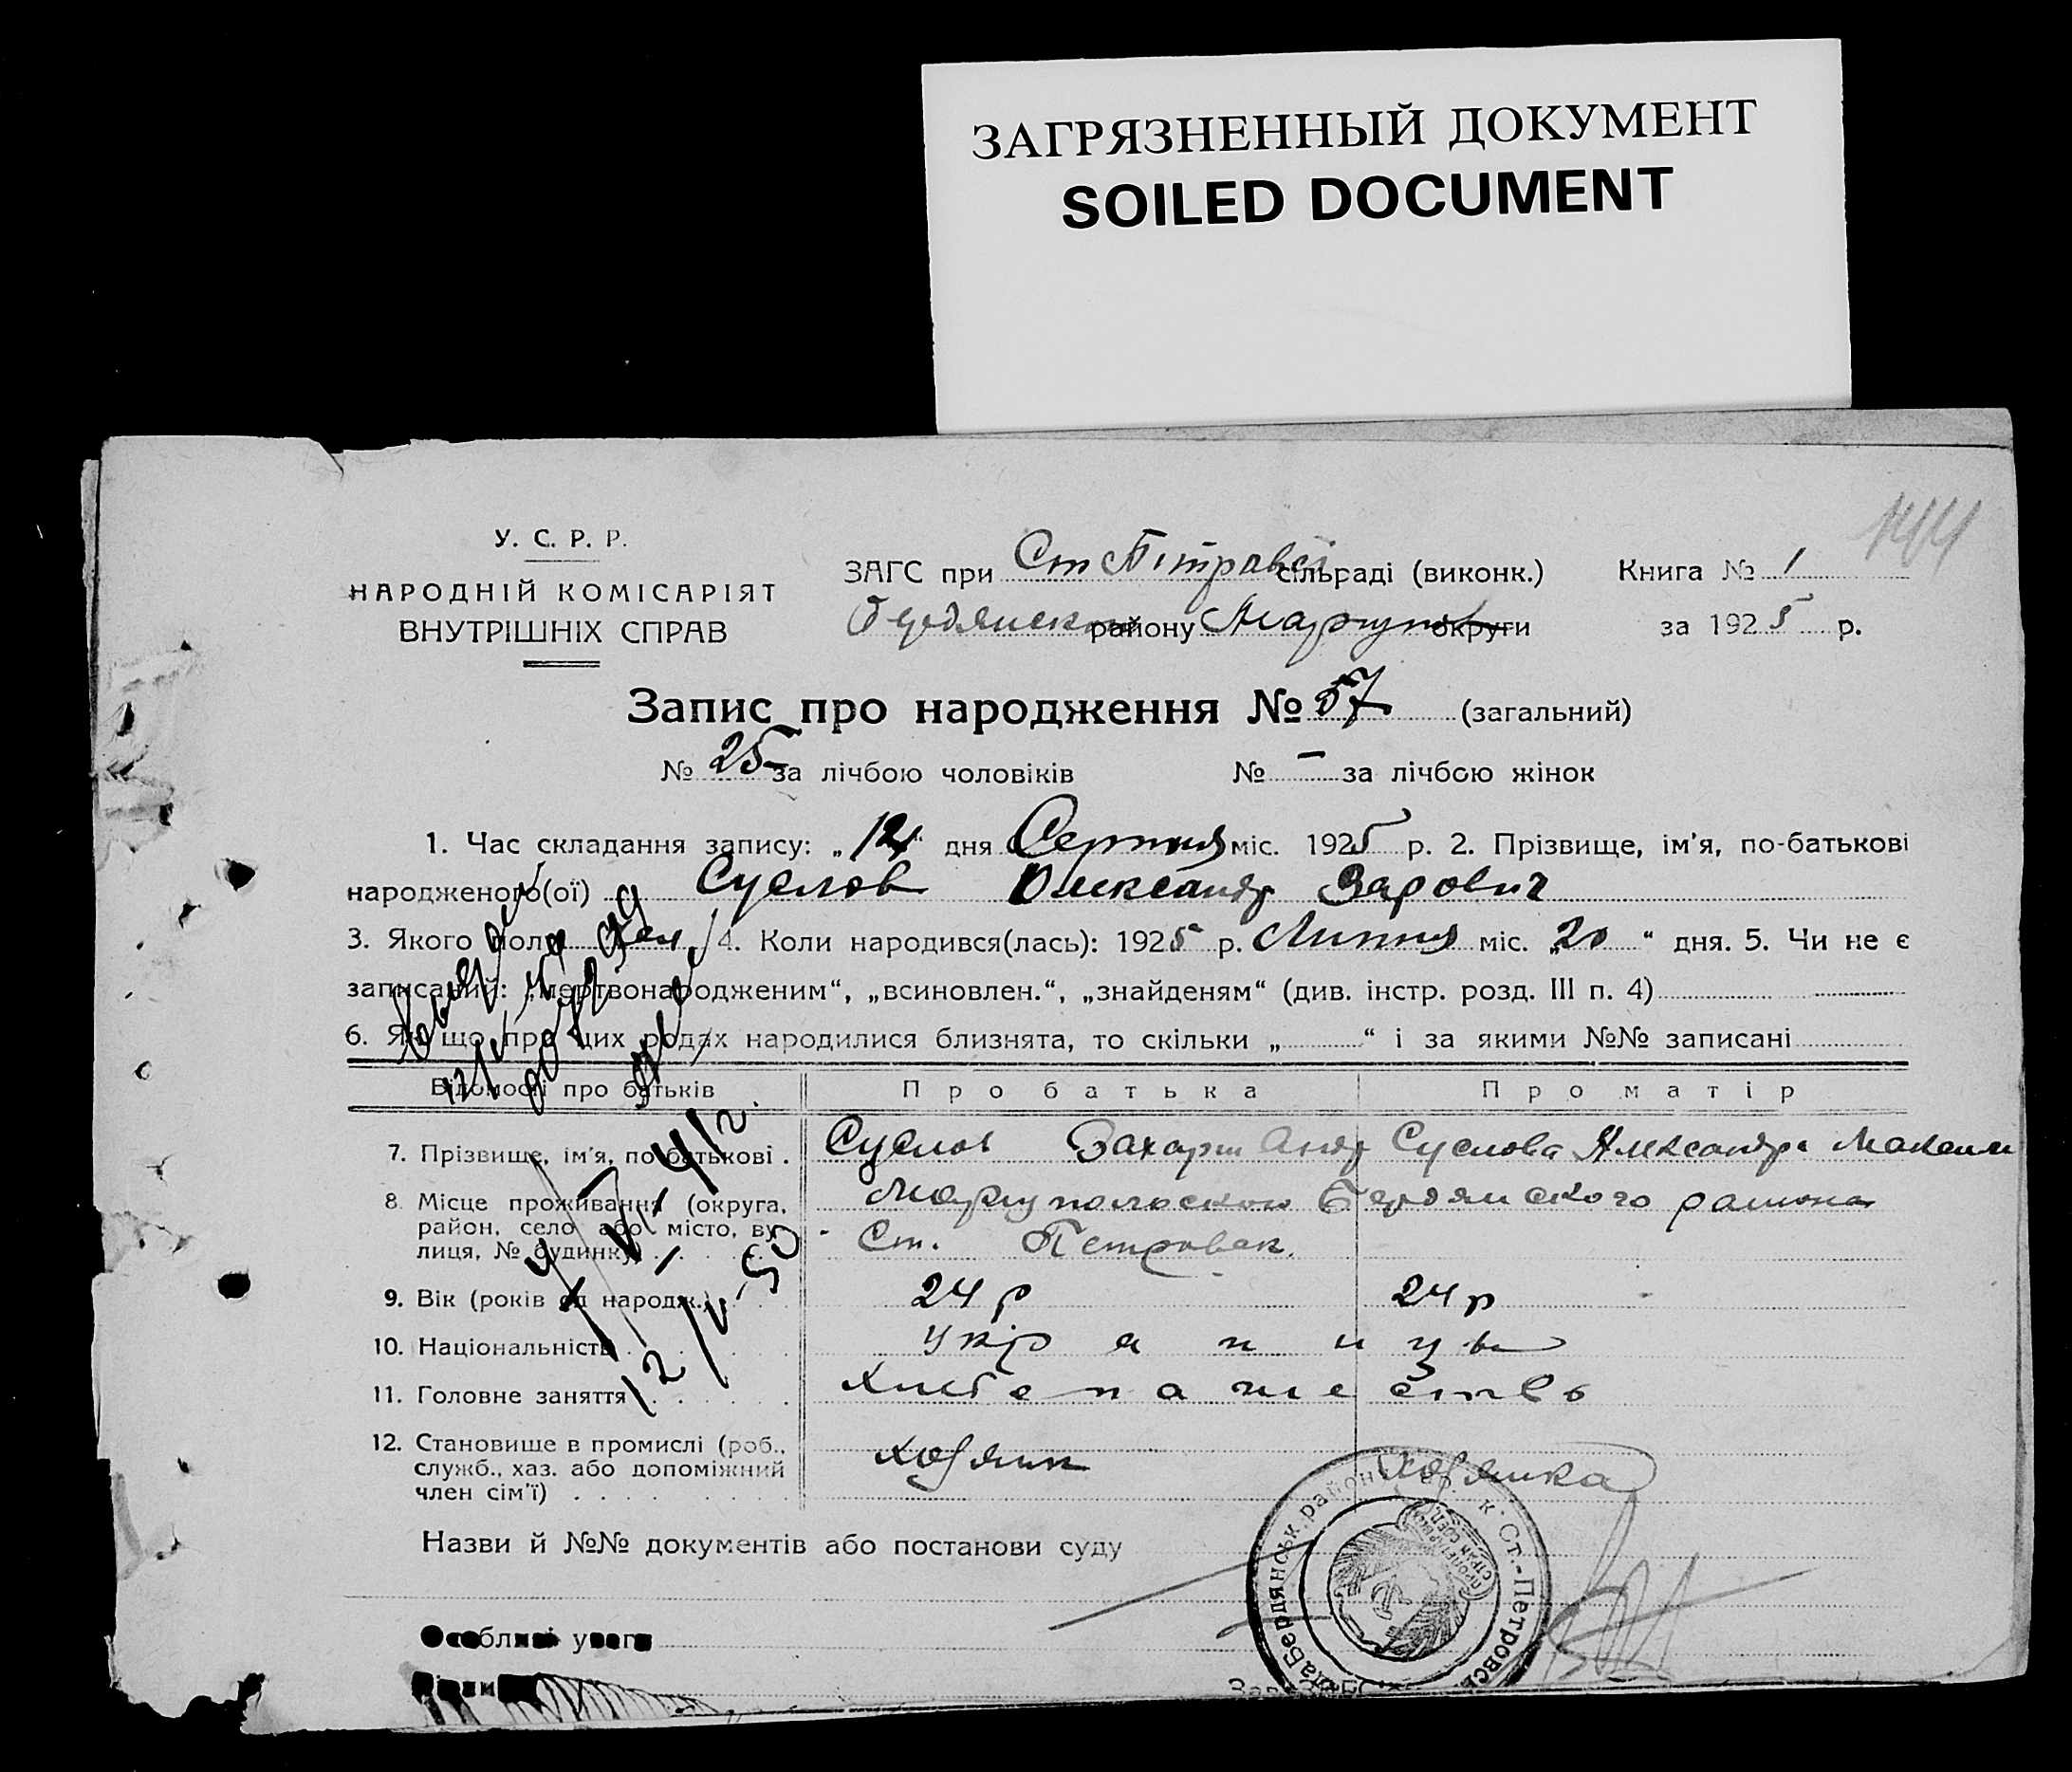 ЗАГРЯЗНЕННЫЙ ДОКУМЕНТ
SOILED DOCUMENT
144
У. С. Р. Р.
НАРОДНІЙ КОМІСАРІЯТ
ВНУТРІШНІХ СПРАВ
ЗАГС при Ст Петровсі сільраді (виконк.) Книга № 1
Бердянском району Мариупол округи за 1925 р.
Запис про народження № 57 (загальний)
№ 25 за лічбою чоловіків № – за лічбою жінок
1. Час складання запису: „12 дня Серпня міс. 1925 р. 2. Прізвище, ім'я, по-батькові
народженого(ої) Суслов Олександр Зарович
3. Якого полу 4. Коли народився(лась): 1925 р. Липня міс. „20“ дня. 5. Чи не є
записаний: „мертвонародженим“, „всиновлен.“, „знайденям“ (див. інстр. розд. III п. 4)
6. Якщо про цих родах народилися близнята, то скільки „ “ і за якими №№ записані
Відомості про батьків Про батька Про матір
7. Прізвище, ім'я, по-батькові . Суслов Захарий Анд Суслова Александра Максим
8. Місце проживання (округа, Мариупольской Бердянского района
район, село або місто, ву-
лиця, № будинку) Ст. Петровек.
9. Вік (років од народж.) 24 р 24 р
10. Національність Украинцы
11. Головне заняття Хлебопашество
12. Становище в промислі (роб., Хозяин Хозяйка
служб., хаз. або допоміжний
член сім'ї)
12/V-50
Назви й №№ документів або постанови суду
Особливі уваги
Бердянськ. район к Ст.-Петровсь